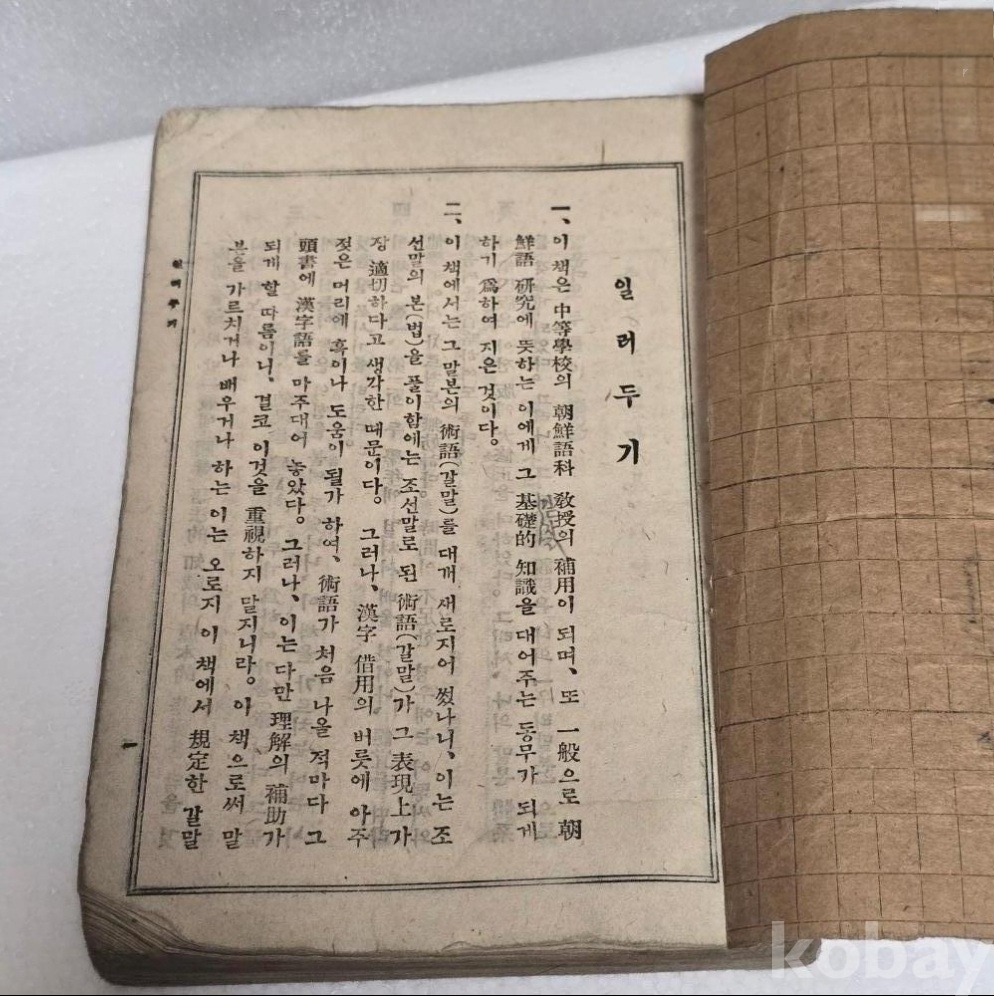 일러두기
一、이 책은 中等學校의 朝鮮語科 敎授의 補用이 되며、또 一般으로 朝
鮮語 硏究에 뜻하는 이에게 그 基礎的 知識을 대어주는 동무가 되게
하기 爲하여 지은 것이다。
二、이 책에서는 그 말본의 術語(갈말)를 대개 새로지어 썼나니、이는 조
선말의 본(법)을 풀이함에는 조선말로 된 術語(갈말)가 그 表現上 가
장 適切하다고 생각한 때문이다。그러나、漢字 借用의 버릇에 아주
젖은 머리에 혹이나 도움이 될가 하여、術語가 처음 나올 적마다 그
頭書에 漢字語를 마주대어 놓았다。그러나、이는 다만 理解의 補助가
되게 할 따름이니、결코 이것을 重視하지 말지니라。이 책으로써 말
본을 가르치거나 배우거나 하는 이는 오로지 이 책에서 規定한 갈말
일러두기
一
kobay